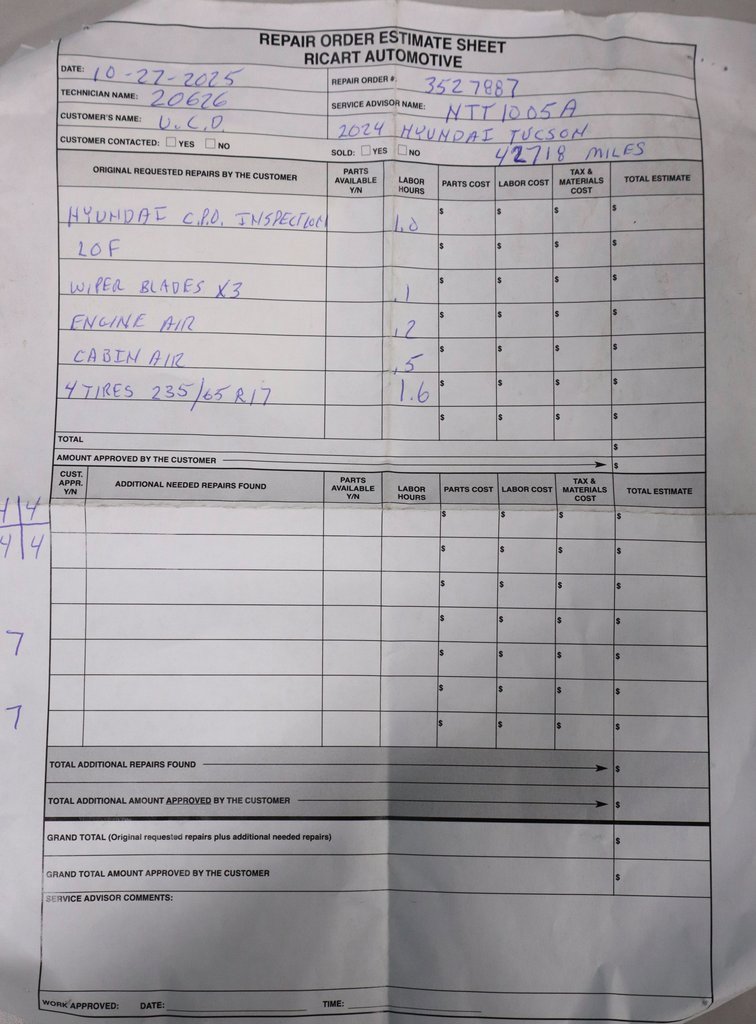 REPAIR ORDER ESTIMATE SHEET
RICART AUTOMOTIVE
DATE: 10-27-2025
REPAIR ORDER #: 3527887
TECHNICIAN NAME: 20626
SERVICE ADVISOR NAME: NTT1005A
CUSTOMER'S NAME: U.C.D.
2024 HYUNDAI TUCSON
CUSTOMER CONTACTED: YES NO
SOLD: YES NO 42718 MILES
ORIGINAL REQUESTED REPAIRS BY THE CUSTOMER PARTS AVAILABLE Y/N LABOR HOURS PARTS COST LABOR COST TAX & MATERIALS COST TOTAL ESTIMATE
HYUNDAI C.P.O. INSPECTION 1.0 $ $ $ $
LOF $ $ $ $
WIPER BLADES X3 .1 $ $ $ $
ENGINE AIR .2 $ $ $ $
CABIN AIR .5 $ $ $ $
4 TIRES 235/65 R17 1.6 $ $ $ $
$ $ $ $
TOTAL $
AMOUNT APPROVED BY THE CUSTOMER $
CUST. APPR. Y/N ADDITIONAL NEEDED REPAIRS FOUND PARTS AVAILABLE Y/N LABOR HOURS PARTS COST LABOR COST TAX & MATERIALS COST TOTAL ESTIMATE
4 4 $ $ $ $
4 4 $ $ $ $
$ $ $ $
$ $ $ $
7 $ $ $ $
$ $ $ $
7 $ $ $ $
TOTAL ADDITIONAL REPAIRS FOUND $
TOTAL ADDITIONAL AMOUNT APPROVED BY THE CUSTOMER $
GRAND TOTAL (Original requested repairs plus additional needed repairs) $
GRAND TOTAL AMOUNT APPROVED BY THE CUSTOMER $
SERVICE ADVISOR COMMENTS:
WORK APPROVED: DATE: TIME: